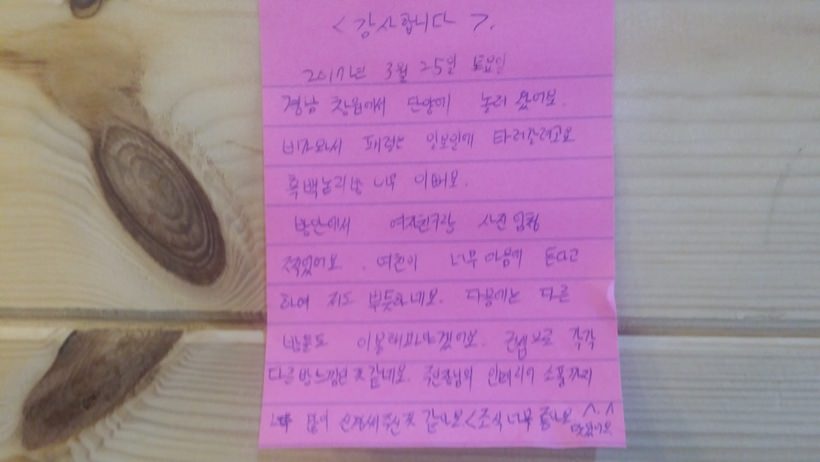 <감사합니다>.
2017년 3월 25일 토요일
경남 창원에서 단양에 놀러 왔어요.
비가와서 패러는 일요일에 타려고
흑백논리방 너무 이뻐요.
방안에서 여자친구랑 사진 엄청
찍었어요. 여친이 너무 마음에 든다고
하여 저도 뿌듯하네요. 다음에는 다른
방들도 이용해봐야겠어요. 컨셉으로 각각
다른방느낌인것 같네요. 주인장님의 인테리어 소품까지
많이 신경써주신것 같아요<조식 너무 좋아요 ^.^
맛있어요